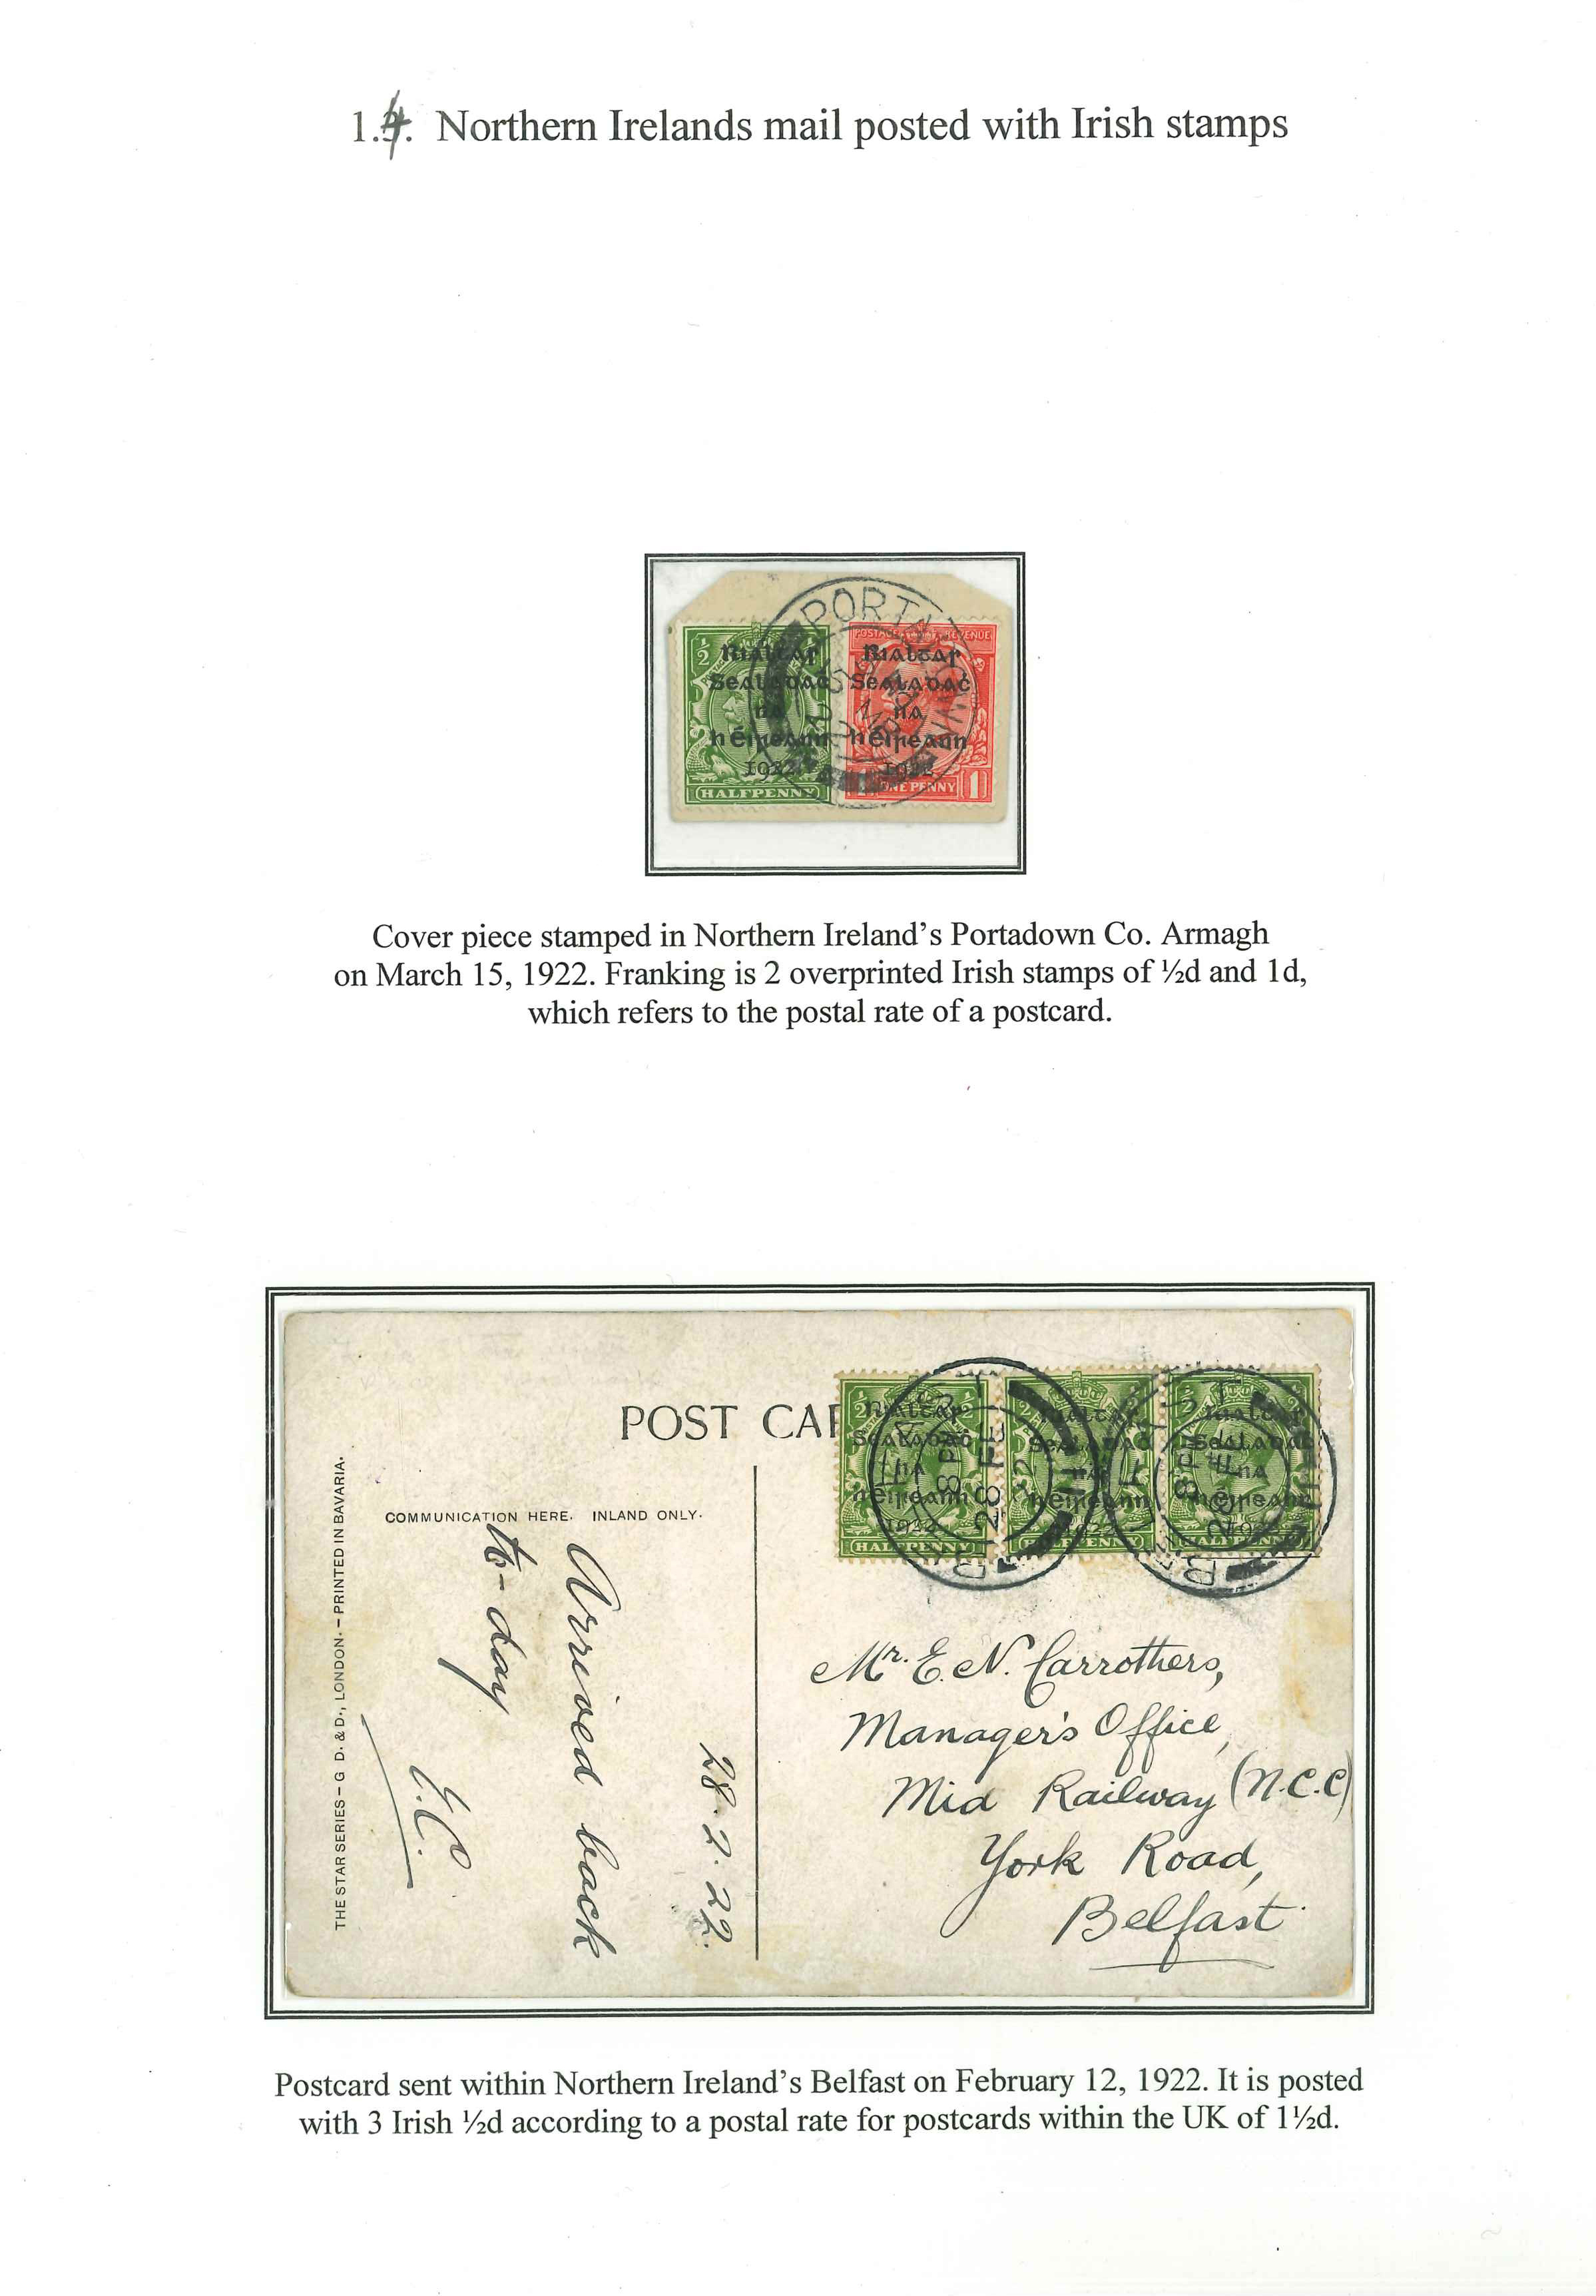 1.4. Northern Irelands mail posted with Irish stamps
PORTADOWN
½
POSTAGE REVENUE
Rialtas Rialtas
Sealadaċ Sealadaċ
na na
hÉireann hÉireann
1922 1922
HALFPENNY
ONE PENNY 1
Cover piece stamped in Northern Ireland’s Portadown Co. Armagh
on March 15, 1922. Franking is 2 overprinted Irish stamps of ½d and 1d,
which refers to the postal rate of a postcard.
POST CAR
Rialtas Rialtas Rialtas
Sealadaċ Sealadaċ Sealadaċ
na na na
hÉireann hÉireann hÉireann
1922 1922 1922
HALFPENNY HALFPENNY HALFPENNY
BELFAST
8 PM
28 FE
22
BELFAST
8 PM
28 FE
COMMUNICATION HERE. INLAND ONLY.
THE STAR SERIES – G D. & D., LONDON. – PRINTED IN BAVARIA.
28.2.22.
Arrived back
to-day
Mr. E. N. Carrothers,
Manager's Office,
Mid Railway (N.C.C)
York Road,
Belfast
Postcard sent within Northern Ireland’s Belfast on February 12, 1922. It is posted
with 3 Irish ½d according to a postal rate for postcards within the UK of 1½d.